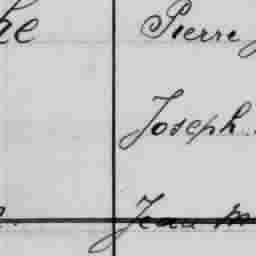 he Pierre
Joseph
Jean M